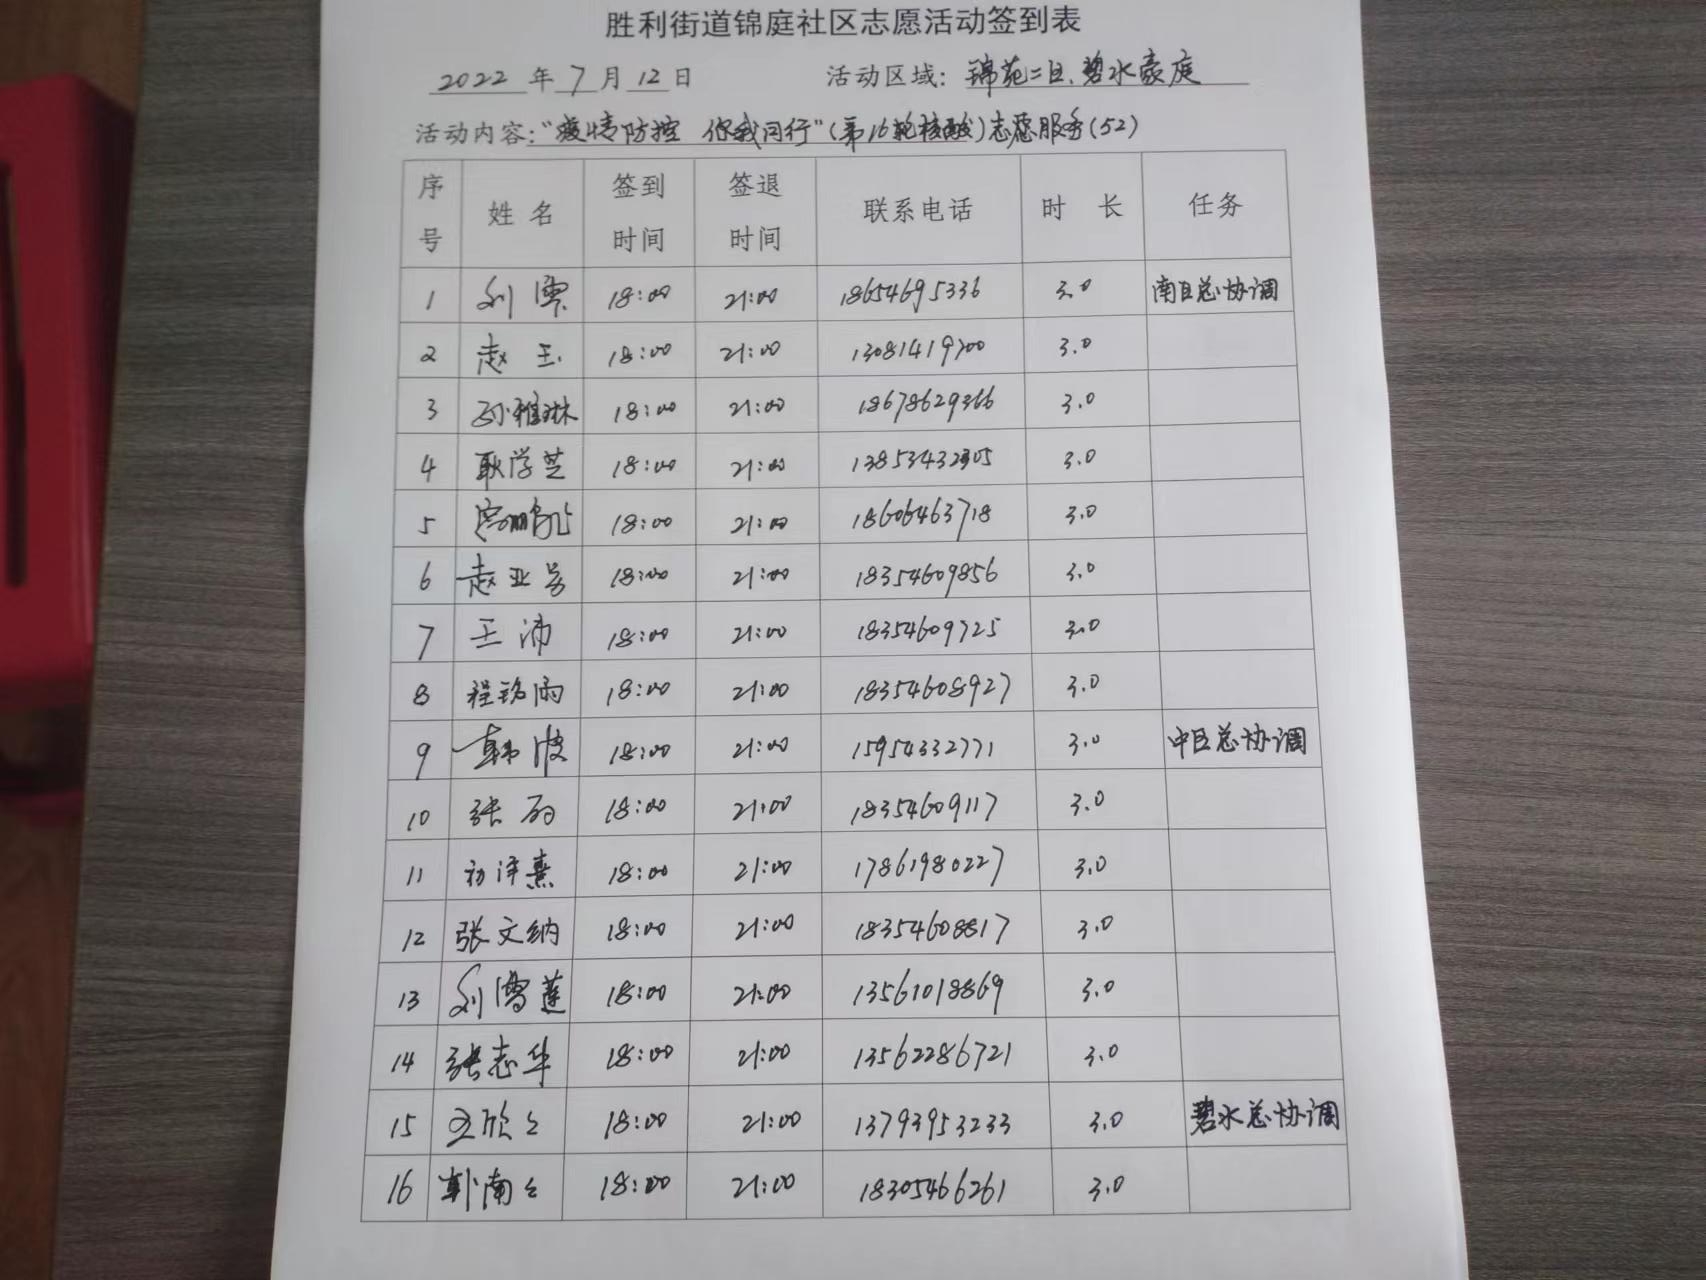 胜利街道锦庭社区志愿活动签到表
2022 年 7 月 12 日 活动区域: 锦苑二区、碧水豪庭
活动内容:"疫情防控 你我同行"(第16轮核酸)志愿服务(52)
序号 姓名 签到时间 签退时间 联系电话 时长 任务
1 刘霞 18:00 21:00 18654695336 3.0 南区总协调
2 赵玉 18:00 21:00 13081419700 3.0
3 孙雅琳 18:00 21:00 18678629366 3.0
4 耿学芝 18:00 21:00 13853432305 3.0
5 18:00 21:00 18606463718 3.0
6 赵亚芳 18:00 21:00 18354609856 3.0
7 王沛 18:00 21:00 18354609725 3.0
8 程铭雨 18:00 21:00 18354608927 3.0
9 韩波 18:00 21:00 15954332771 3.0 中区总协调
10 张 18:00 21:00 18354609117 3.0
11 初泽熹 18:00 21:00 17861980227 3.0
12 张文纳 18:00 21:00 18354608817 3.0
13 刘雪莲 18:00 21:00 13561018869 3.0
14 张志华 18:00 21:00 13562286721 3.0
15 王欣々 18:00 21:00 13793953233 3.0 碧水总协调
16 郭南々 18:00 21:00 18305466261 3.0